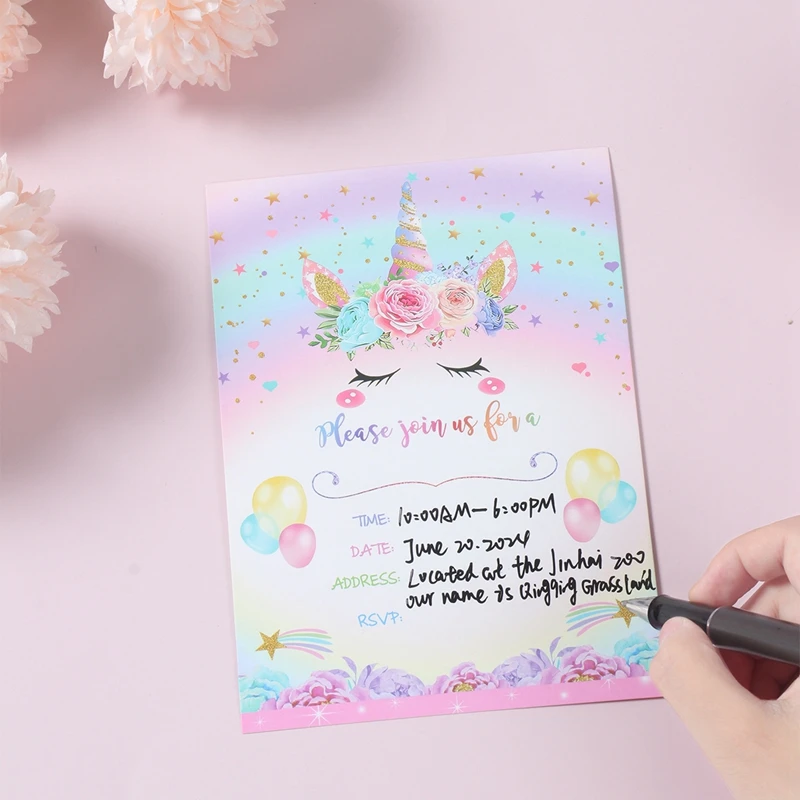 Please join us for a
TIME: 10:00AM—6:00PM
DATE: June 20.2024
ADDRESS: Located at the Jinhai zoo
our name is Qingqing Grassland
RSVP: